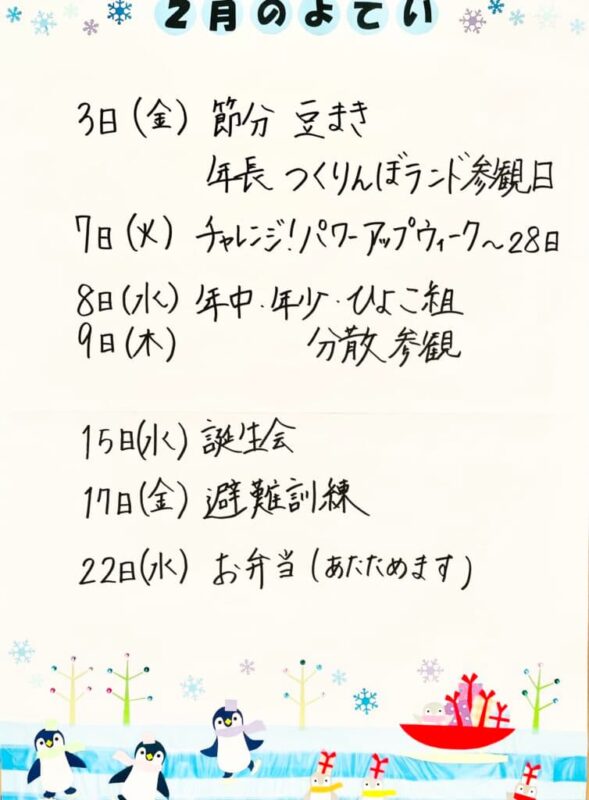 2月のよてい
3日(金) 節分 豆まき
年長 つくりんぼランド参観日
7日(火) チャレンジ!パワーアップウィーク〜28日
8日(水) 年中・年少・ひよこ組
9日(木) 分散参観
15日(水) 誕生会
17日(金) 避難訓練
22日(水) お弁当(あたためます)